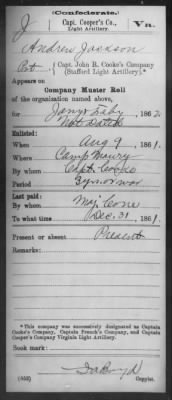 (Confederate.)
J Capt. Cooper's Co., Va.
Light Artillery.
Andrew Jackson
Pvt, Capt. John R. Cooke's Company
(Stafford Light Artillery).*
Appears on
Company Muster Roll
of the organization named above,
for Jany & Feby, 1862.
Not Dated
Enlisted:
When Aug 9, 1861.
Where Camp Maury
By whom Capt. Cooke
Period 2 yrs or war
Last paid:
By whom Maj. Cone
To what time Dec. 31, 1861.
Present or absent Present
Remarks:
*This company was successively designated as Captain
Cooke's Company, Captain French's Company, and Captain
Cooper's Company Virginia Light Artillery.
Book mark:
(642) Copyist.